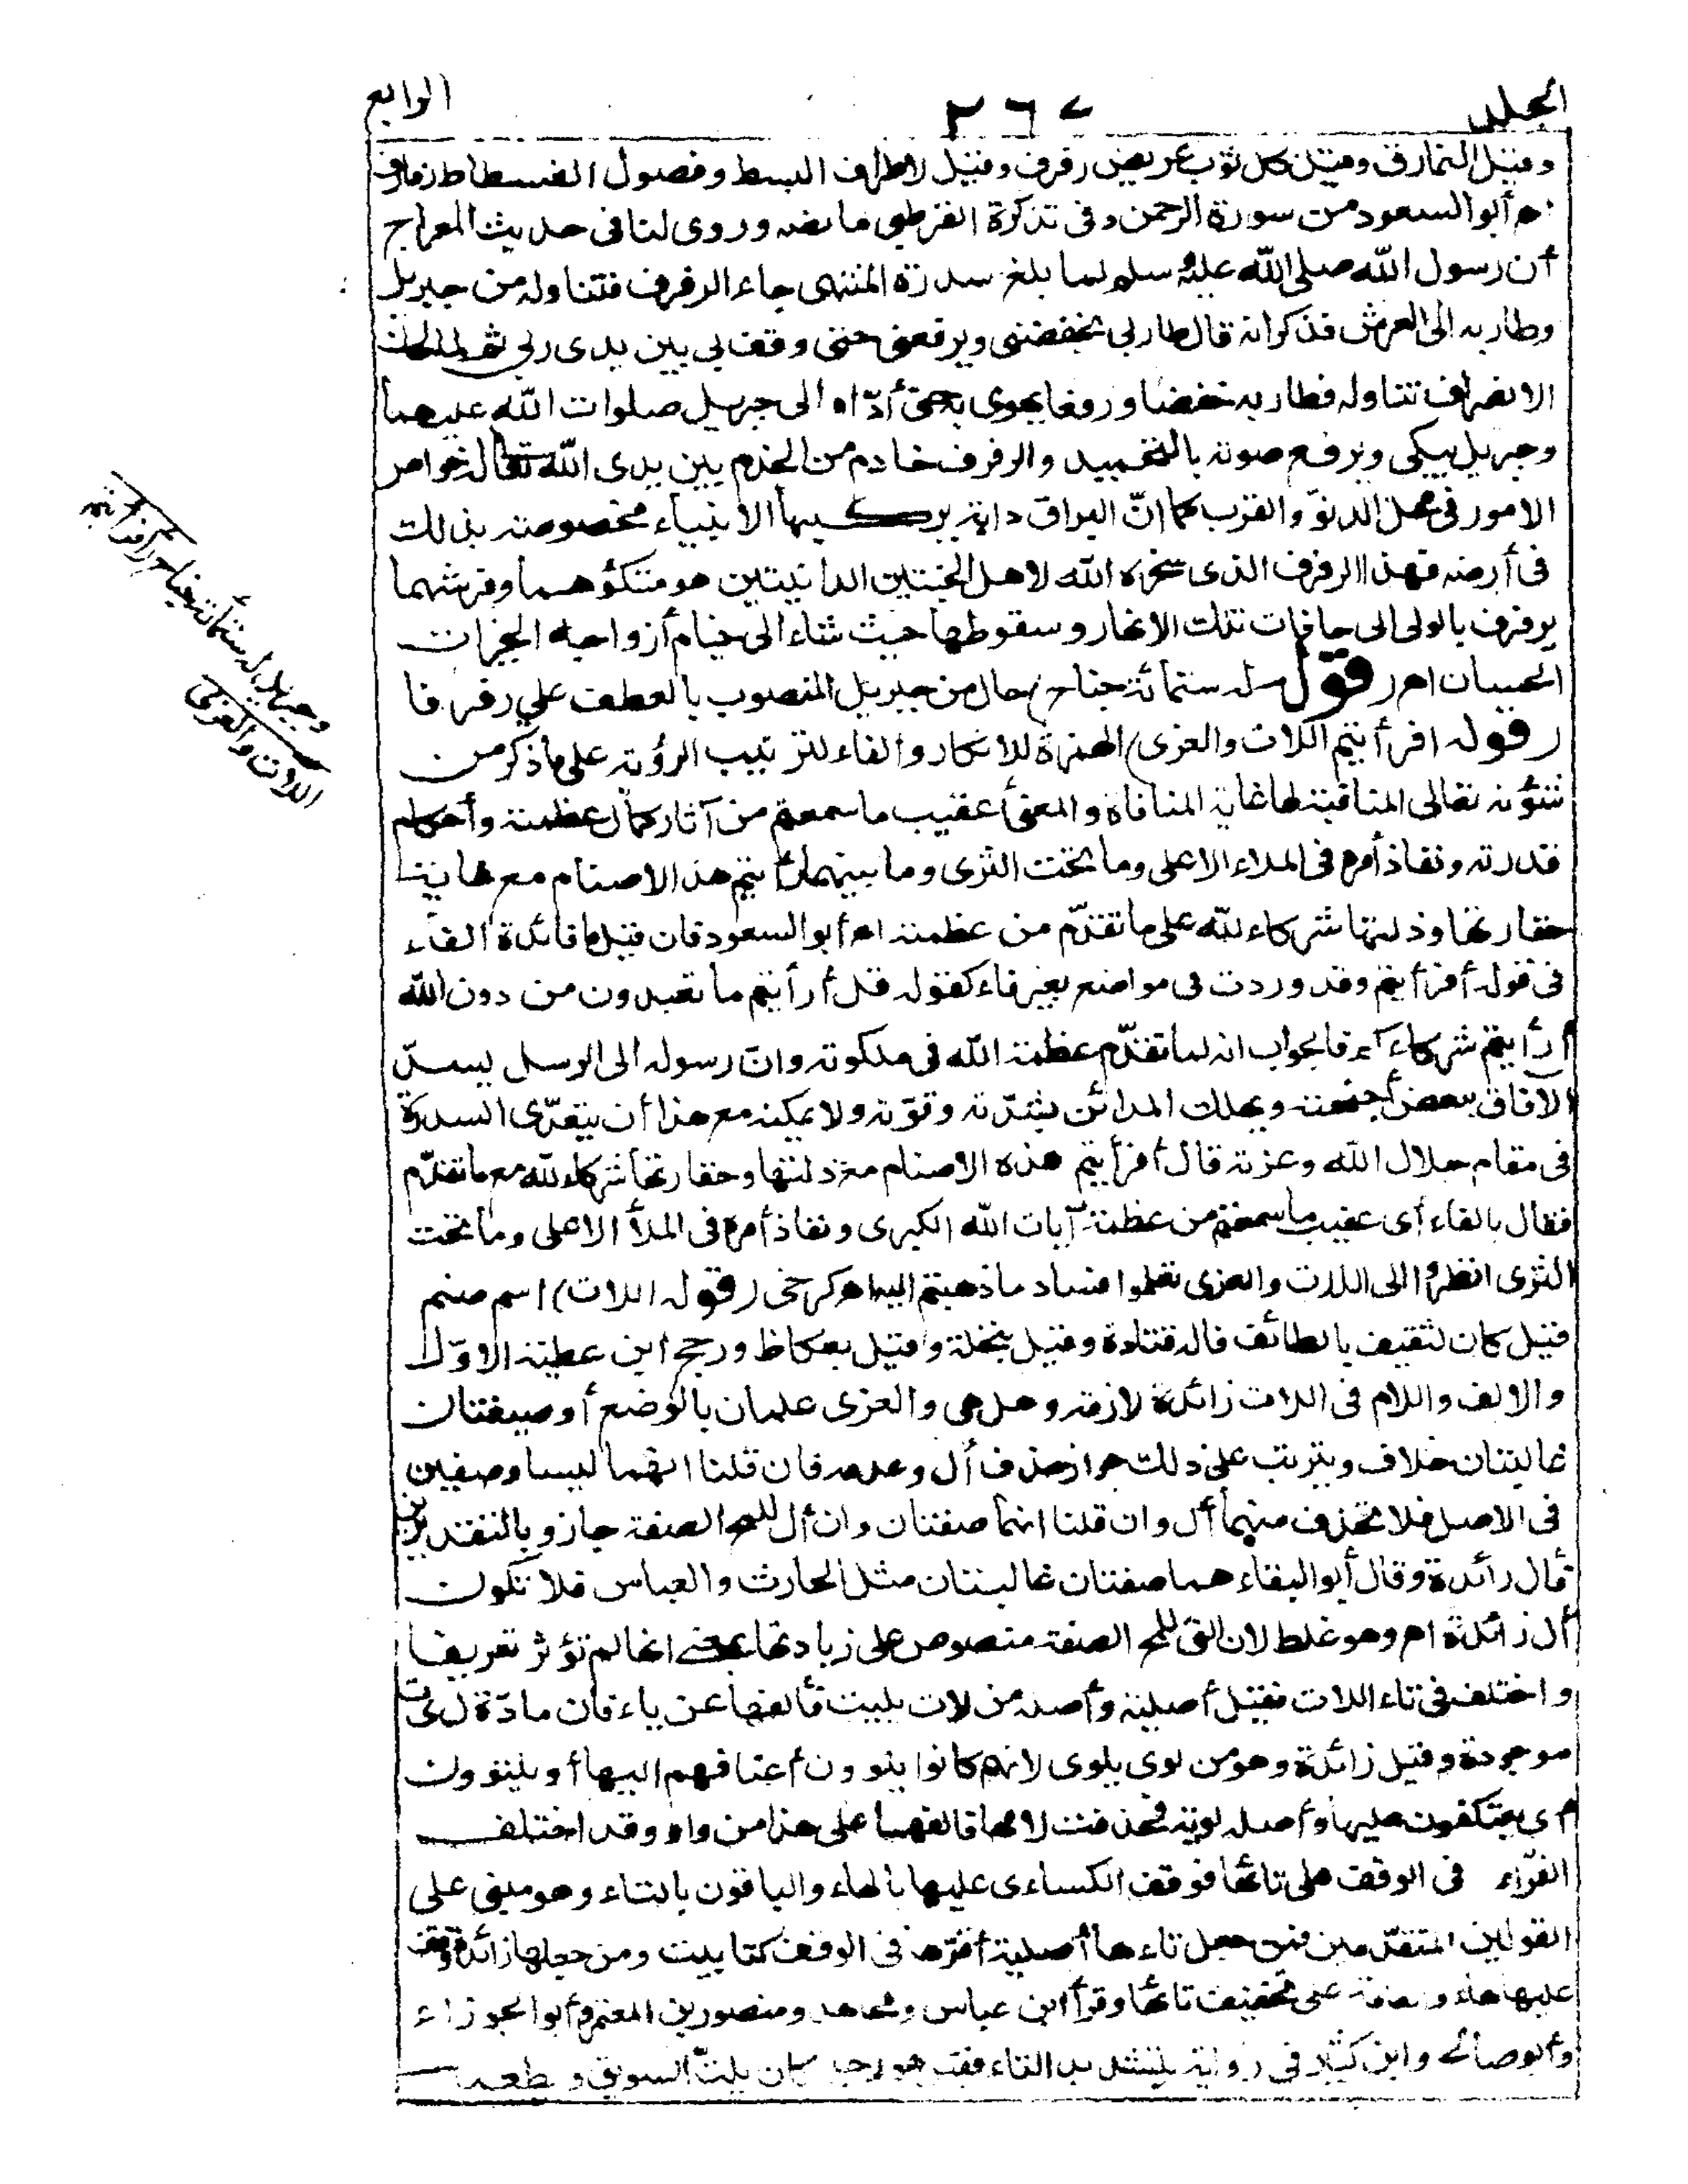 المجلد
٢٦٧
الرابع
وقيل النمارق وقيل كل ثوب عريض رفرف وقيل لاطراف البسط وفضول الفسطاط رفارف
اه أبو السعود من سورة الرحمن وفى تذكرة القرطبى ما نصه وروى لنا فى حديث المعراج
أن رسول الله صلى الله عليه وسلم لما بلغ سدرة المنتهى جاء الرفرف فتناوله من جبريل
وطار به الى العرش فذكر انه قال طار بى يخفضنى ويرفعنى حتى وقف بى بين يدى ربى ثم لما حان
الانصراف تناوله فطار به خفضا ورفعا يهوى به حتى أدّاه الى جبريل صلوات الله عليهما
وجبريل يبكى ويرفع صوته بالتحميد والرفرف خادم من الخدم بين يدى الله تعالى له خواص
الامور فى محل الدنوّ والقرب كما انّ البراق دابة يركبها الانبياء مخصوصة بذلك
فى أرضه فهذا الرفرف الذى سخره الله لاهل الجنتين الدانيتين هو متكؤهما وفرشهما
يرفرف بالولى الى حافات تلك الانهار وشطوطها حيث شاء الى خيام أزواجه الخيرات
الحسان اهـ (قوله له ستمائة جناح) حال من جبريل المنصوب بالعطف على رفرفا
(قوله افرأيتم اللات والعزى) الهمزة للانكار والفاء لترتيب الرؤية على ما ذكر من
شئونه تعالى المنافية لها غاية المنافاة والمعنى أعقيب ما سمعتم من آثار كمال عظمته وأحكام
قدرته ونفاذ أمره فى الملاء الاعلى وما تحت الثرى وما بينهما رأيتم هذه الاصنام مع غاية
حقارتها وذلتها شركاء لله على ما تقدّم من عظمته اه أبو السعود فان قيل ما فائدة الفاء
فى قوله أفرأيتم وقد وردت فى مواضع بغير فاء كقوله قل أرأيتم ما تعبدون من دون الله
أرأيتم شركاءكم فالجواب انه لما تقدّم عظمة الله فى ملكوته وانّ رسوله الى الرسل يسدّ
الآفاق ببعض أجنحته ويهلك المدائن بشدّته وقوّته ولا يمكنه مع هذا أن يتعدّى السدرة
فى مقام جلال الله وعزته قال أفرأيتم هذه الاصنام مع ذلتها وحقارتها شركاء لله مع ما تقدّم
فقال بالفاء أى عقيب ما سمعتم من عظمة آيات الله الكبرى ونفاذ أمره فى الملأ الاعلى وما تحت
الثرى انظروا الى اللات والعزى تعلموا فساد ما ذهبتم اليه اه كرخى (قوله اللات) اسم صنم
قيل كان لثقيف بالطائف قاله قتادة وقيل بنخلة وقيل بعكاظ ورجح ابن عطية الاوّل
والالف واللام فى اللات زائدة لازمة وهل هى والعزى علمان بالوضع أو صفتان
غالبتان خلاف ويترتب على ذلك جواز حذف أل وعدمه فان قلنا انهما ليسا وصفين
فى الاصل فلا تحذف منهما أل وان قلنا انهما صفتان وان أل للمح الصفة جاز وبالتقديرين
فأل زائدة وقال أبو البقاء هما صفتان غالبتان مثل الحارث والعباس فلا تكون
أل زائدة اه وهو غلط لان التى للمح الصفة منصوص على زيادتها بمعنى انها لم تؤثر تعريفا
واختلف فى تاء اللات فقيل أصلية وأصله من لات يليت فألفها عن ياء فان مادّة ل ى ت
موجودة وقيل زائدة وهو من لوى يلوى لانهم كانوا يلوون أعناقهم اليها أو يلتوون
أى يعتكفون عليها وأصله لوية فحذفت لامها فالفها على هذا من واو وقد اختلف
القرّاء فى الوقف على تائها فوقف الكساءى عليها بالهاء والباقون بالتاء وهو مبنى على
القولين المتقدّمين فمن جعل تاءها أصلية أقرّها فى الوقف كتاء بيت ومن جعلها زائدة وقف
عليها هاء والعامة على تخفيف تائها وقرأ ابن عباس ومجاهد ومنصور بن المعتمر وأبو الجوزاء
وأبو صالح وابن كثير فى رواية بتشديد التاء فقيل هو رجل كان يلتّ السويق ويطعمه
وجبريل له ستمائة جناح أفرأيتم
اللات والعزى